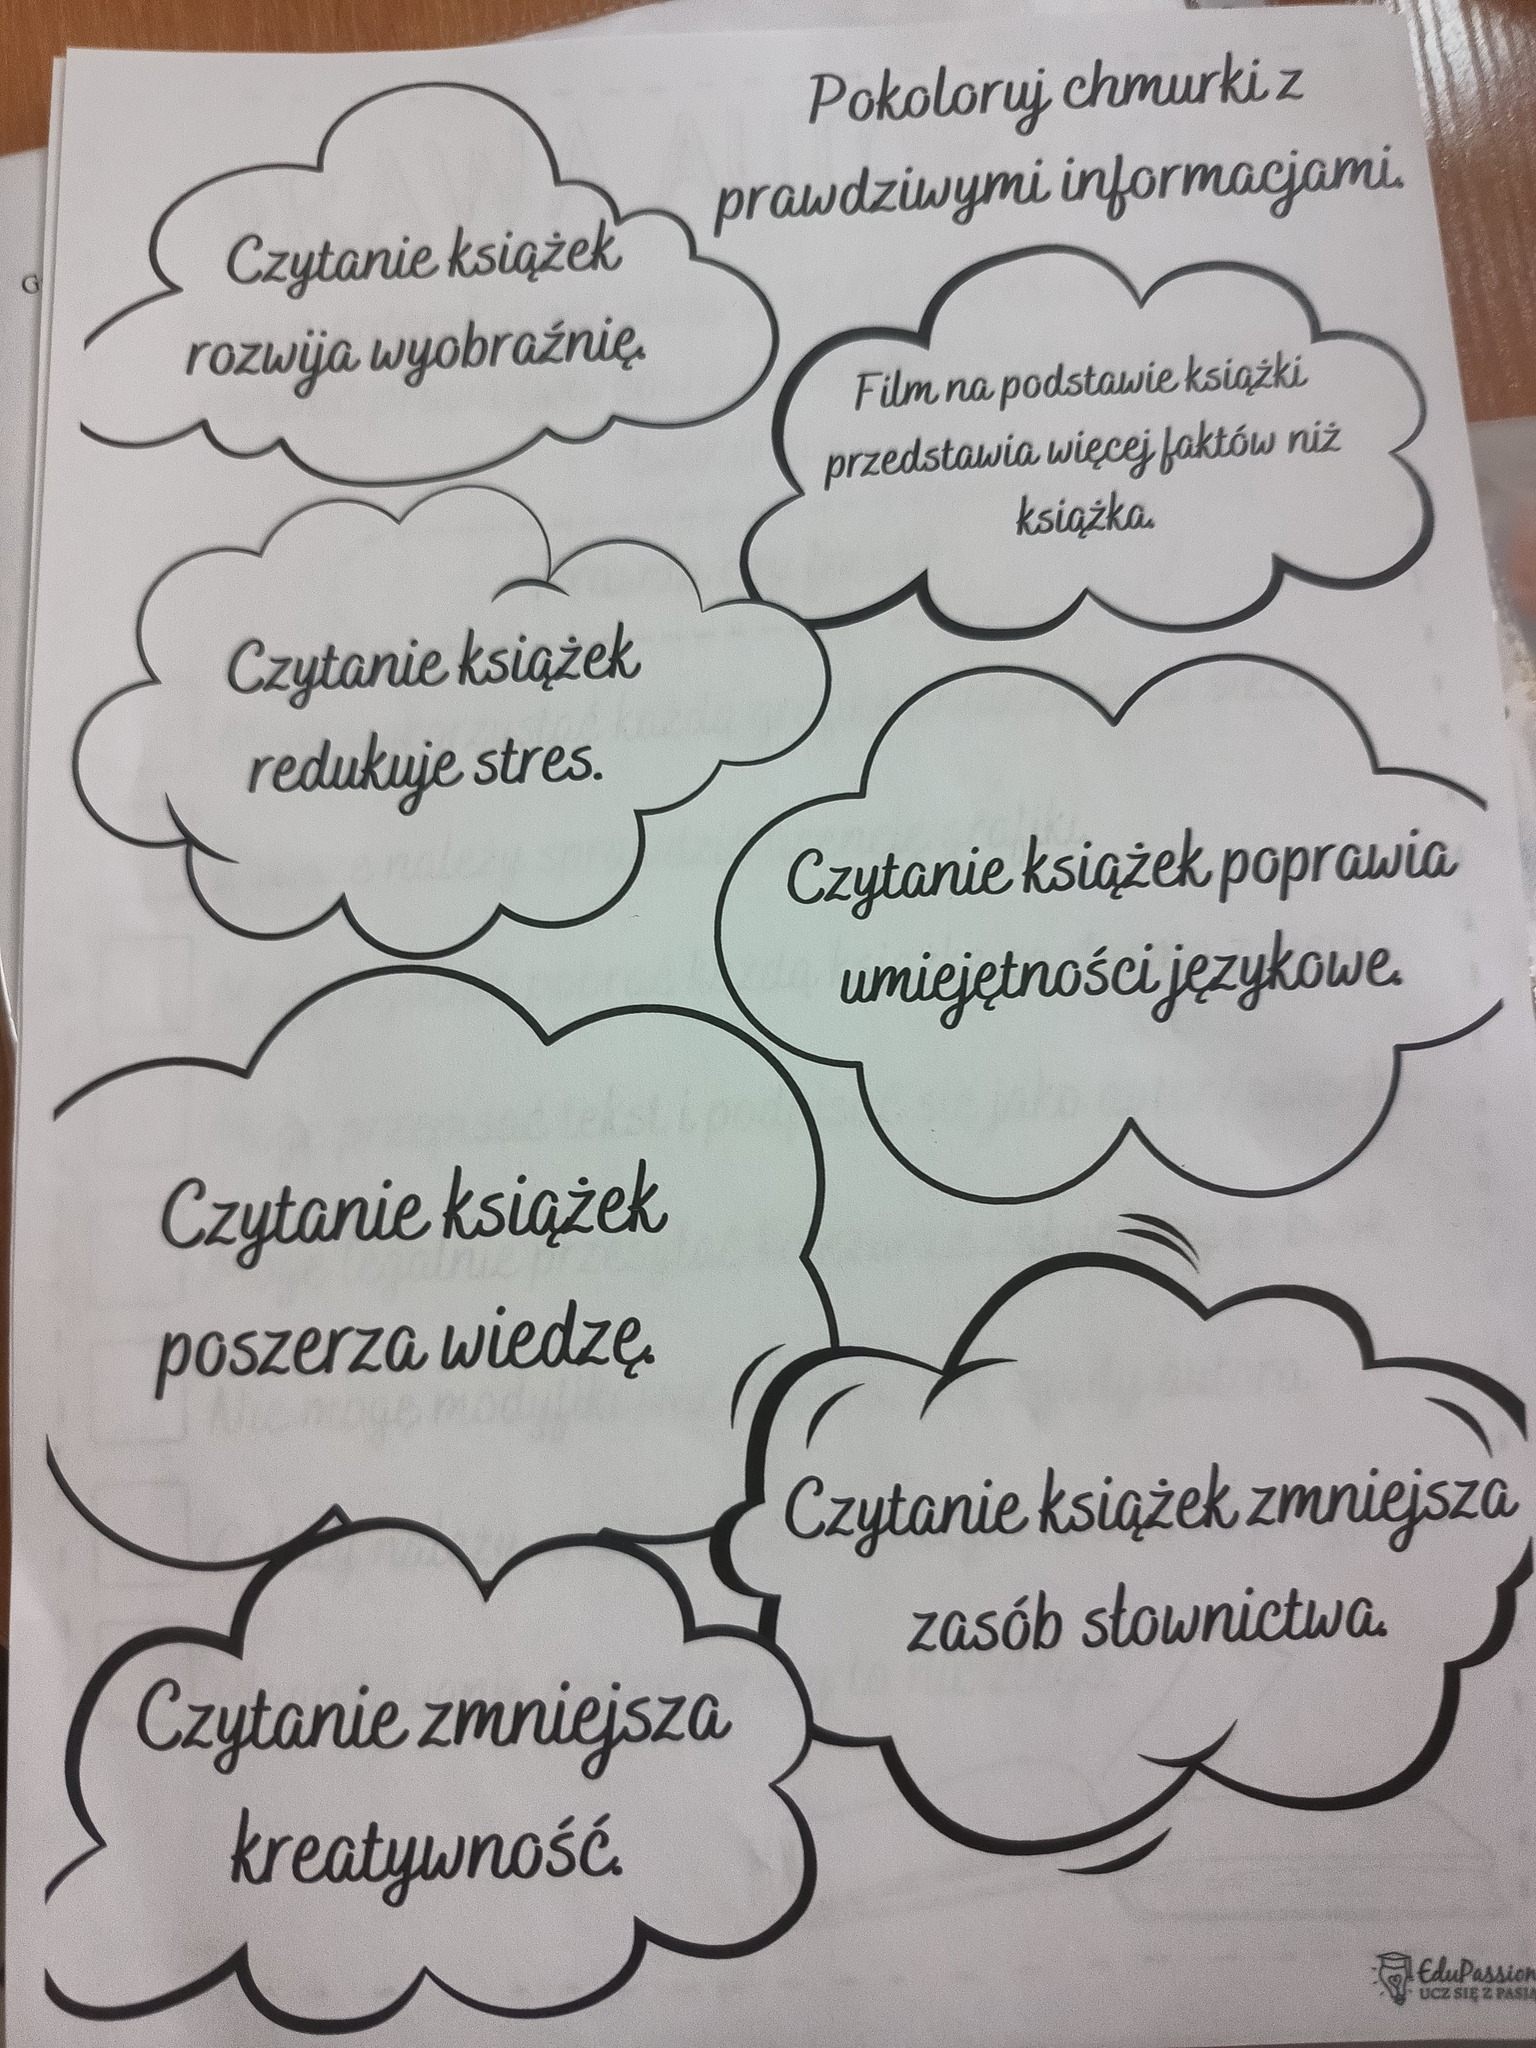 Pokoloruj chmurki z
prawdziwymi informacjami.
Czytanie książek
rozwija wyobraźnię.
Film na podstawie książki
przedstawia więcej faktów niż
książka.
Czytanie książek
redukuje stres.
Czytanie książek poprawia
umiejętności językowe.
Czytanie książek
poszerza wiedzę.
Czytanie książek zmniejsza
zasób słownictwa.
Czytanie zmniejsza
kreatywność.
EduPassion
UCZ SIĘ Z PASJĄ
G